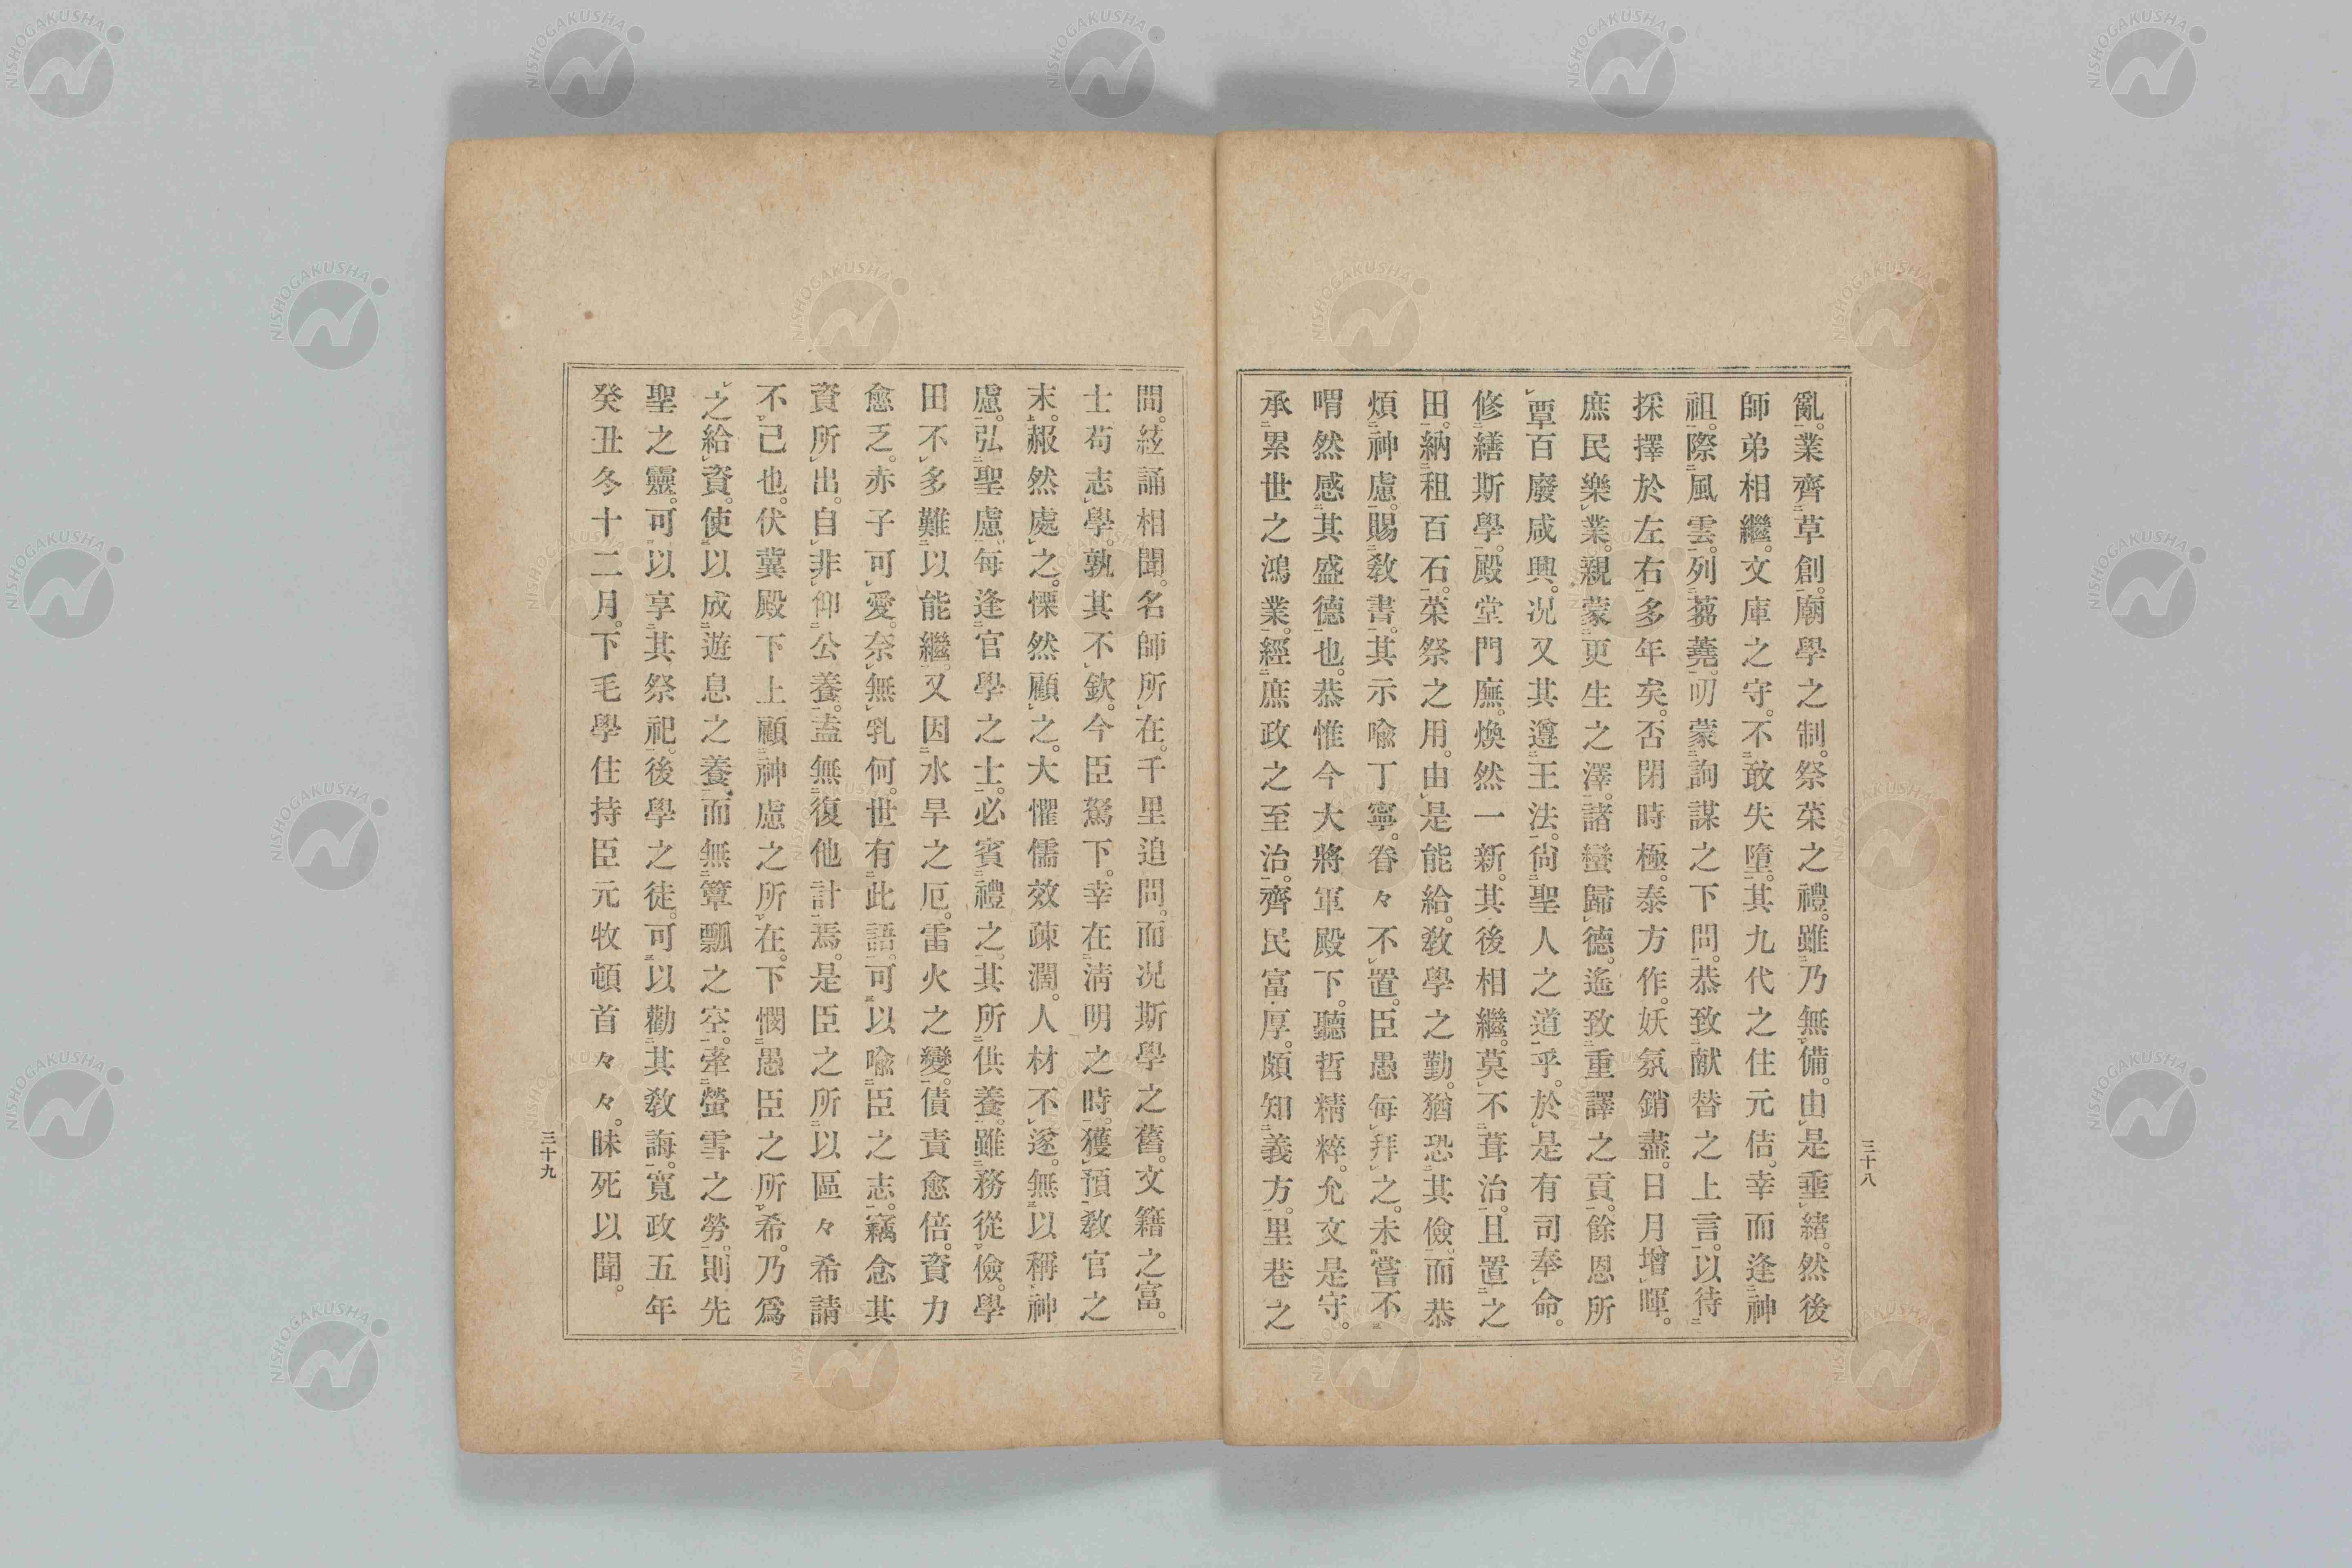 亂。業齊草創。廟學之制。祭菜之禮。雖乃無備。由是垂緒。然後
師弟相繼。文庫之守。不敢失墮。其九代之住元佶。幸而逢神
祖。際風雲。列蒭蕘。叨蒙詢謀之下問。恭致献替之上言。以待
採擇於左右多年矣。否閉時極。泰方作。妖氛銷盡。日月增暉。
庶民樂業。親蒙更生之澤。諸蠻歸德。遙致重譯之貢。餘恩所
覃百廢咸興。况又其遵王法。尙聖人之道乎。於是有司奉命。
修繕斯學。殿堂門廡。煥然一新。其後相繼。莫不葺治。且置之
田。納租百石。菜祭之用。由是能給。敎學之勤。猶恐其儉。而恭
煩神慮。賜敎書。其示喩丁寧。眷々不置。臣愚每拜之。未嘗不
喟然感其盛德也。恭惟今大將軍殿下。聽哲精粹。允文是守。
承累世之鴻業。經庶政之至治。齊民富厚。頗知義方。里巷之
三十八
間。絃誦相聞。名師所在。千里追問。而况斯學之舊。文籍之富。
士苟志學。孰其不欽。今臣駑下。幸在淸明之時。獲預敎官之
末。赧然處之。慄然顧之。大懼儒效疎濶。人材不遂。無以稱神
慮。弘聖慮。每逢官學之士。必賓禮之。其所供養。雖務從儉。學
田不多難以能繼。又因水旱之厄。雷火之變。債責愈倍。資力
愈乏。赤子可愛。奈無乳何。世有此語。可以喩臣之志。竊念其
資所出。自非仰公養。盖無復他計焉。是臣之所以區々希請
不已也。伏冀殿下上顧神慮之所在。下憫愚臣之所希。乃爲
之給資。使以成遊息之養而無簞瓢之空。牽螢雪之勞。則先
聖之靈。可以享其祭祀。後學之徒。可以勸其敎誨。寬政五年
癸丑冬十二月。下毛學住持臣元牧頓首々々。昧死以聞。
三十九